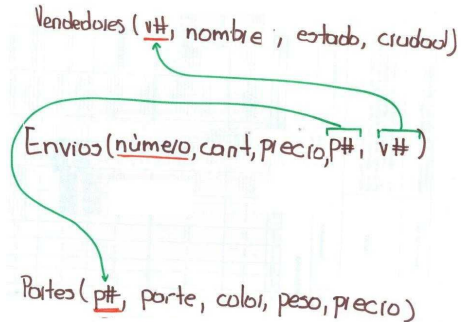 Vendedores (v#, nombre, estado, ciudad)
Envios(número, cant, precio, p#, v#)
Partes (p#, parte, color, peso, precio)